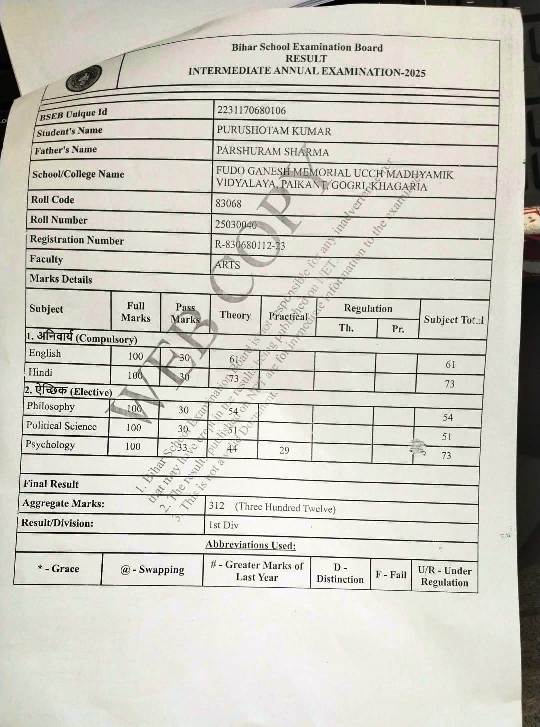 Bihar School Examination Board
RESULT
INTERMEDIATE ANNUAL EXAMINATION-2025
BSEB Unique Id 2231170680106
Student's Name PURUSHOTAM KUMAR
Father's Name PARSHURAM SHARMA
School/College Name FUDO GANESH MEMORIAL UCCH MADHYAMIK
VIDYALAYA, PAIKANT, GOGRI, KHAGARIA
Roll Code 83068
Roll Number 25030040
Registration Number R-830680112-23
Faculty ARTS
Marks Details
Subject Full Marks Pass Marks Theory Practical Regulation Th. Pr. Subject Total
1. अनिवार्य (Compulsory)
English 100 30 61 61
Hindi 100 30 73 73
2. ऐच्छिक (Elective)
Philosophy 100 30 54 54
Political Science 100 30 51 51
Psychology 100 33 44 29 73
Final Result
Aggregate Marks: 312 (Three Hundred Twelve)
Result/Division: 1st Div
Abbreviations Used:
* - Grace @ - Swapping # - Greater Marks of Last Year D - Distinction F - Fail U/R - Under Regulation
WEB COPY
1. Bihar School Examination Board is not responsible for any inadvertent error
that may have crept in the results being published on NET.
2. The results published on NET are for immediate information to the examinees.
3. This is not a Document.